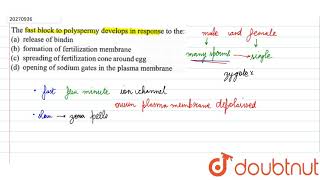 20270936
The fast block to polyspermy develops in response to the:
(a) release of bindin
(b) formation of fertilization membrane
(c) spreading of fertilization cone around egg
(d) opening of sodium gates in the plasma membrane
male and female
many sperms → single
zygote x
• fast few minute ion channel
ovum plasma membrane depolarised
• slow → zona pellu
doubtnut